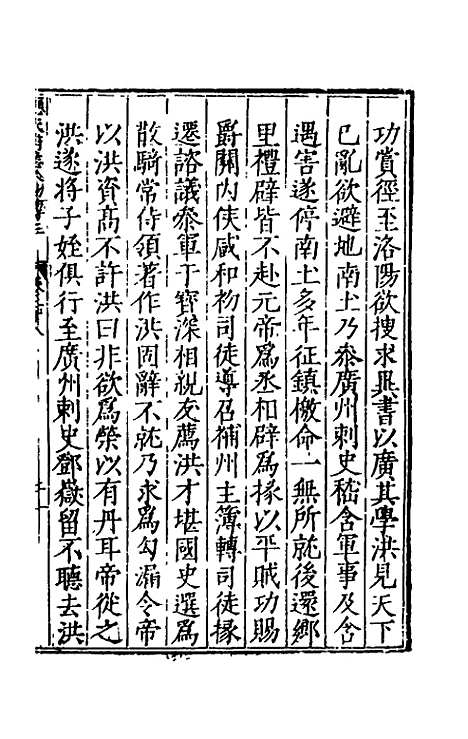 功賞徑至洛陽欲搜求異書以廣其學洪見天下
已亂欲避地南土乃叅廣州刺史嵇含軍事及含
遇害遂停南土多年征鎮檄命一無所就後還鄉
里禮辟皆不赴元帝爲丞相辟爲掾以平賊功賜
爵關內侯咸和初司徒導召補州主簿轉司徒掾
遷諮議叅軍干寶深相親友薦洪才堪國史選爲
散騎常侍領著作洪固辭不就乃求爲勾漏令帝
以洪資髙不許洪曰非欲爲榮以有丹耳帝從之
洪遂將子姪俱行至廣州刺史鄧嶽留不聽去洪